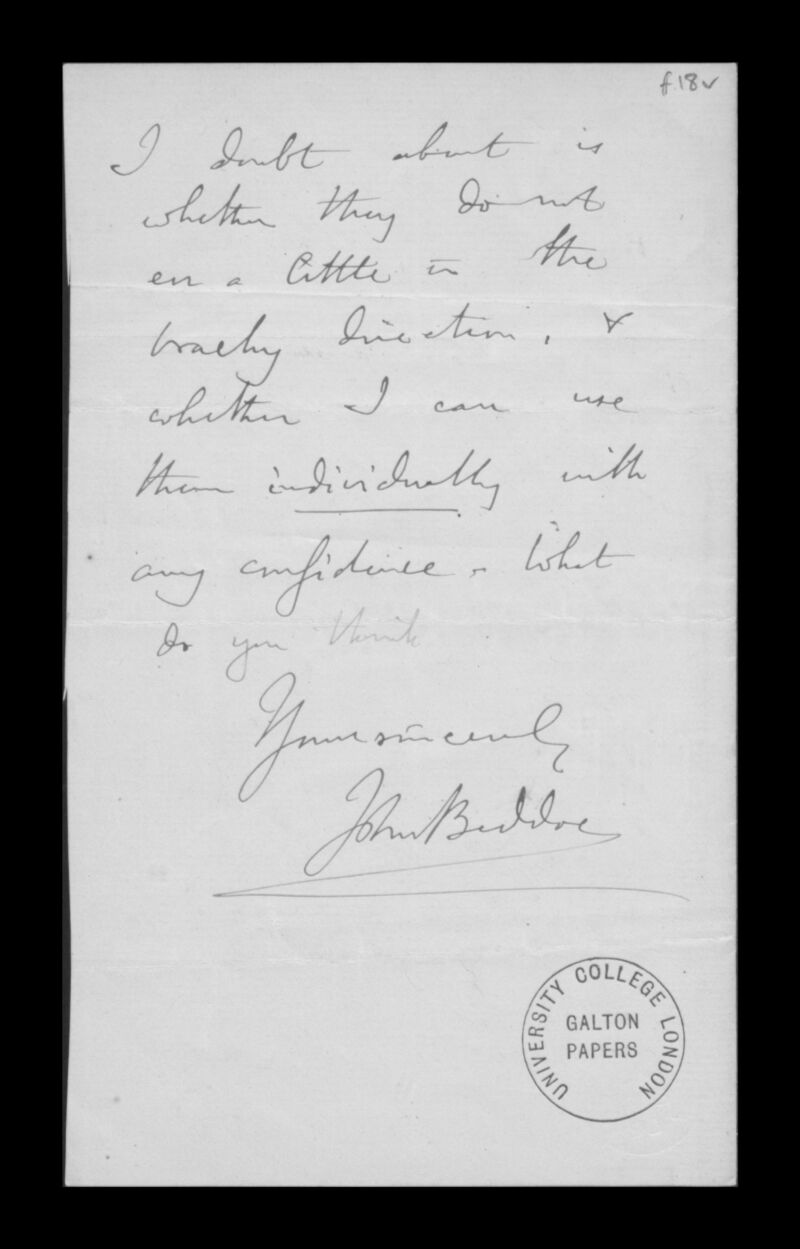 f.18v
I doubt about is
whether they do not
err a little in the
brachy direction, &
whether I can use
them individually with
any confidence. What
do you think
Yours sincerely
John Beddoe
UNIVERSITY COLLEGE LONDON
GALTON
PAPERS